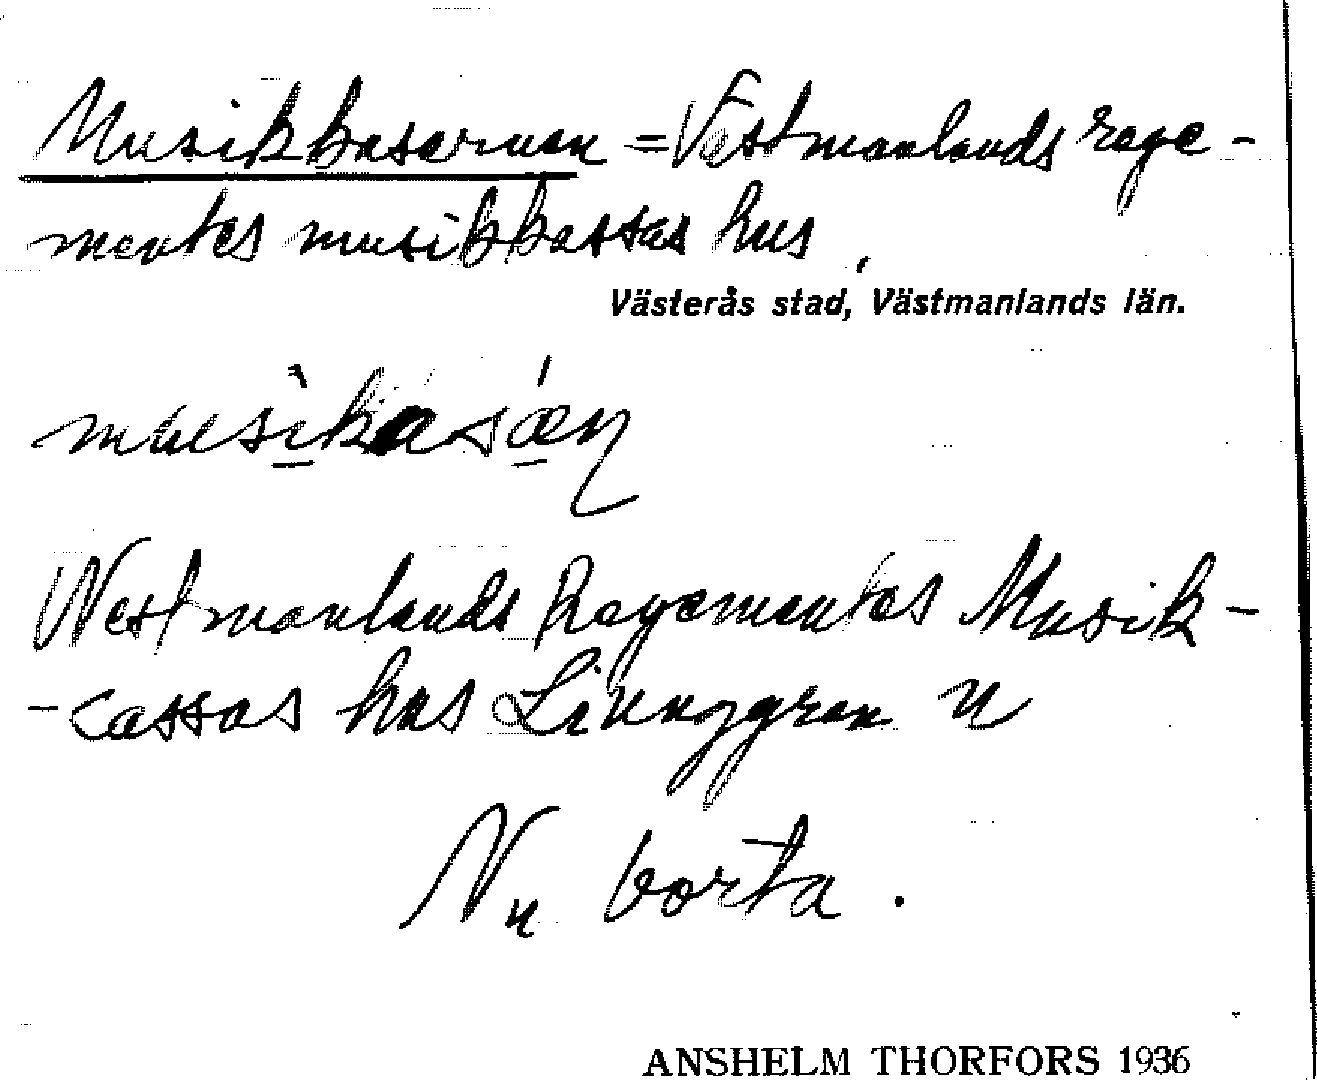 Musikkasernen = Västmanlands rege-
mentes musikkassas hus,
Västerås stad, Västmanlands län.
Westmanlands Regementes Musik-
-cassas hus Linnggren u
Nu borta.
ANSHELM THORFORS 1936